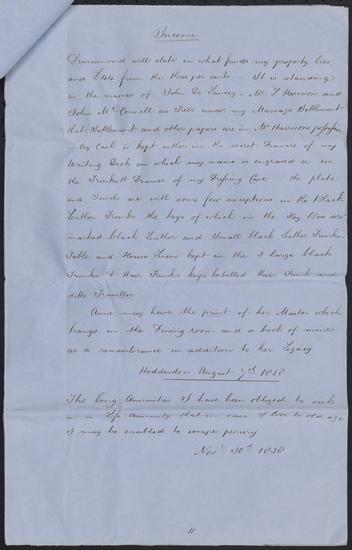 Income
Drummond will state in what funds my property lies
and £44 from the three per cents - It is standing
in the names of John De Lancey - Mr. L Harrison and
John Mc. Connell as Trees under my Marriage Settlement
that Settlement and other papers are in Mr Harrisons possession
- My Cash is kept either in the secret drawers of my
Writing Desk on which my name is engraved or in
the Trinkett Drawer of my Dressing Case - the plate
and Jewels are with some few exceptions in the Black
Leather Trunks the keys of which in the Key Box are
marked black Leather and Small black Leather Trunks.
Table and House Linen kept in the 2 large black
Trunks & Hair Trunks keys labelled Hair Trunk and
ditto Traveller
Anne may have the print of her Master which
hangs in the Dining room and a book of mine
as a remembrance in addition to her Legacy
Hoddesdon August 7th 1838
The long Annuities I have been obliged to sink
in a Life Annuity that in case I live to old age
I may be enabled to escape penury
Novr. 30th 1838
11